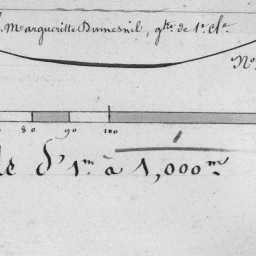 Margueritte Dumesnil, g^de de 1^e cl^e
No
80 90 100
le d'1.^m à 1,000.^m